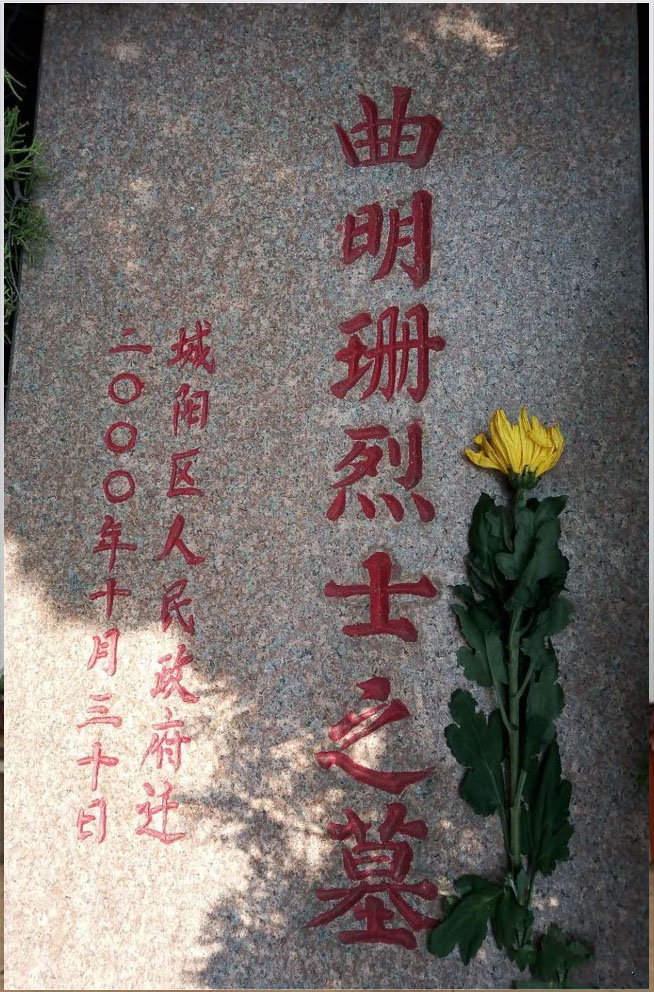 曲明珊烈士之墓
城阳区人民政府迁
二〇〇〇年十月三十日